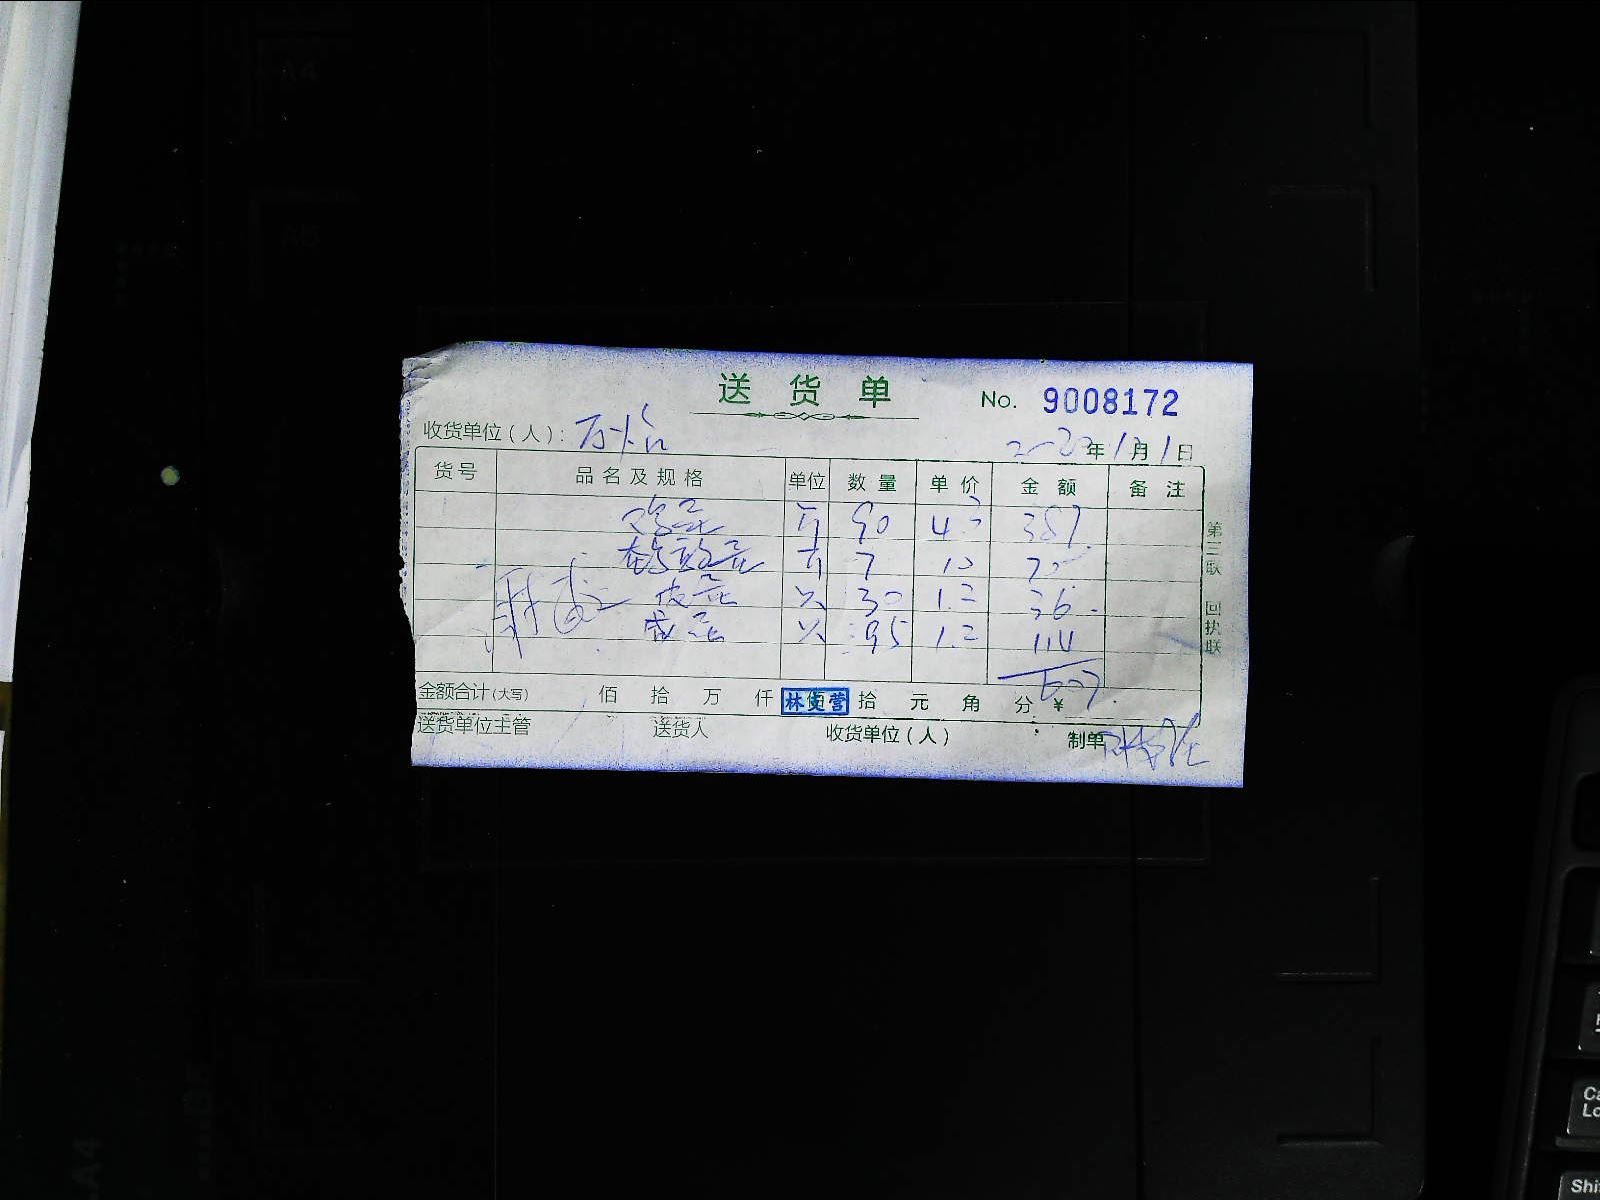 送货单
No. 9008172
收货单位(人): 万怡
2020年1月1日
货号 品名及规格 单位 数量 单价 金额 备注
鸡蛋 斤 90 4.3 387
斤 7 10 70
皮蛋 只 30 1.2 36
咸蛋 只 95 1.2 114
607
金额合计(大写) 佰 拾 万 仟 佰 拾 元 角 分 ¥
送货单位主管 送货人 收货单位(人) 制单
第三联 回执联
A4
A5
A4
Shi